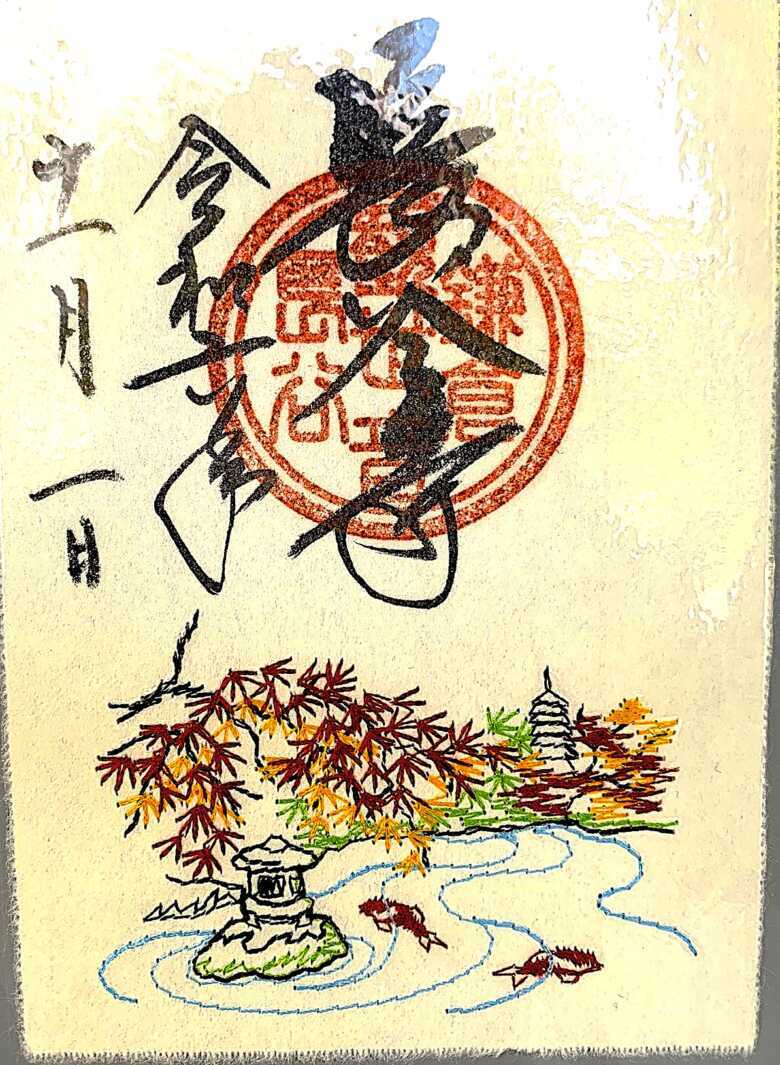 長谷寺
令和六年
十一月一日
鎌倉
世音
長谷